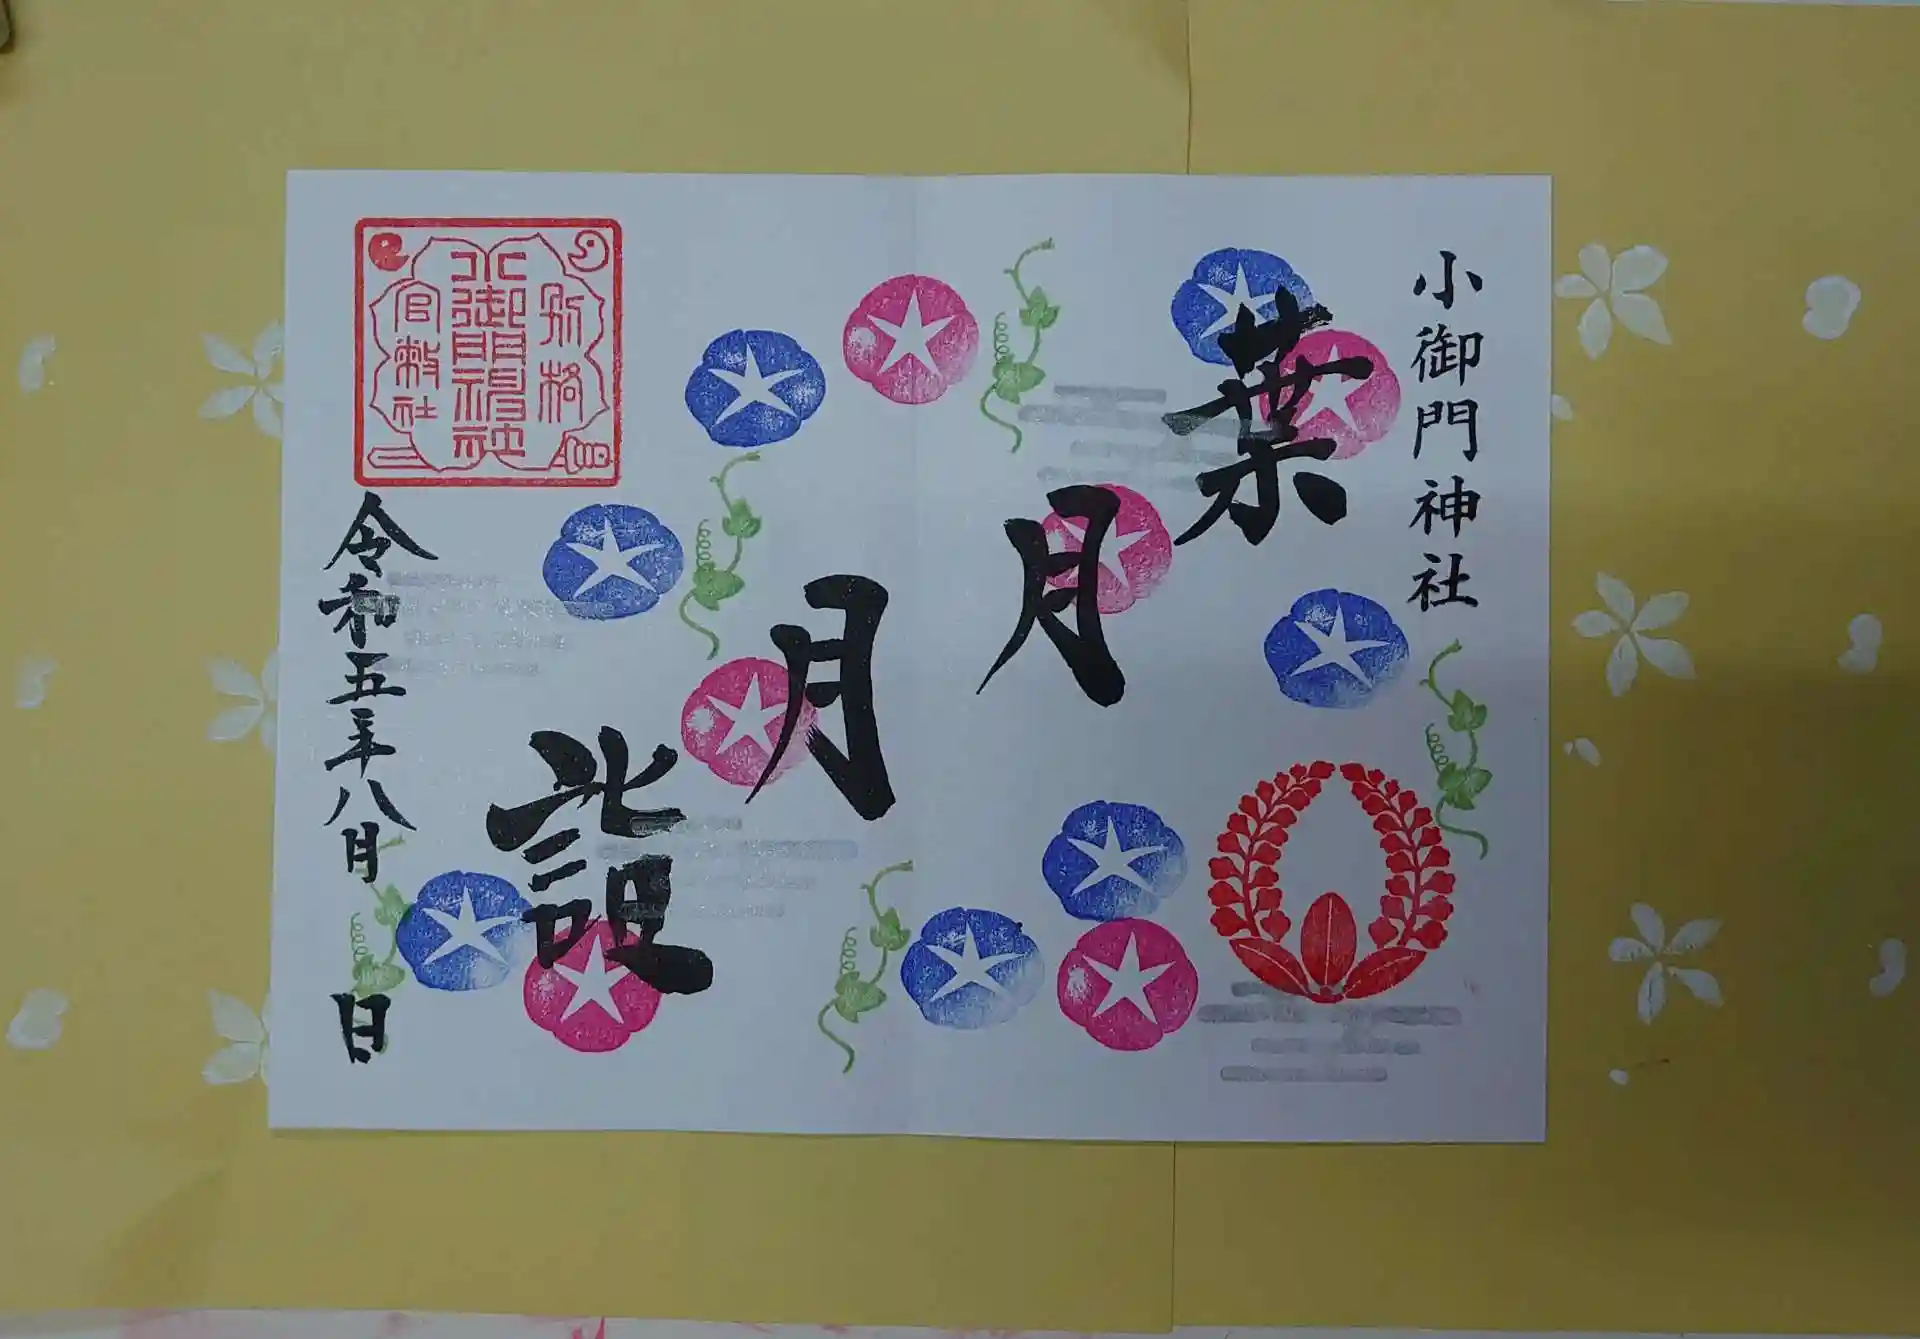 小御門神社
葉月月詣
別格
小御門神社
官幣社
令和五年八月 日